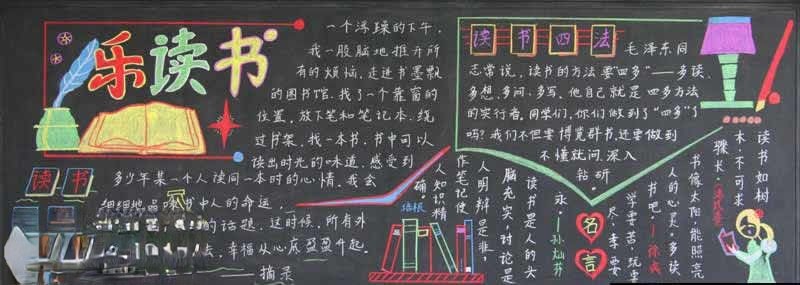 乐读书
一个浮躁的下午，
我一股脑地推开所
有的烦恼，走进书墨飘
的图书馆。找了一个靠窗的
位置，放下笔和笔记本，绕
过书架，找一本书，书中可以
读出时光的味道，感受到
多少年某一个人读同一本时的心情，我会
细细地品味书中人的命运，
的话题。这时候，所有外
去，幸福从心底盈盈升起。
——摘录
读书
读书四法
毛泽东同
志常说，读书的方法要“四多”——多读、
多想、多问、多写，他自己就是四多方法
的实行者，同学们，你们做到了“四多”了
吗？我们不但要博览群书，还要做到
不懂就问，深入
钻研。
读书如树
木，不可求
骤长。
书像太阳，能照亮
人的心灵，多读
书吧！
学要苦，玩要
尽，
名言
读书是人的头
脑充实，讨论是
人明辩是非，
作笔记使
人知识精
确
培根